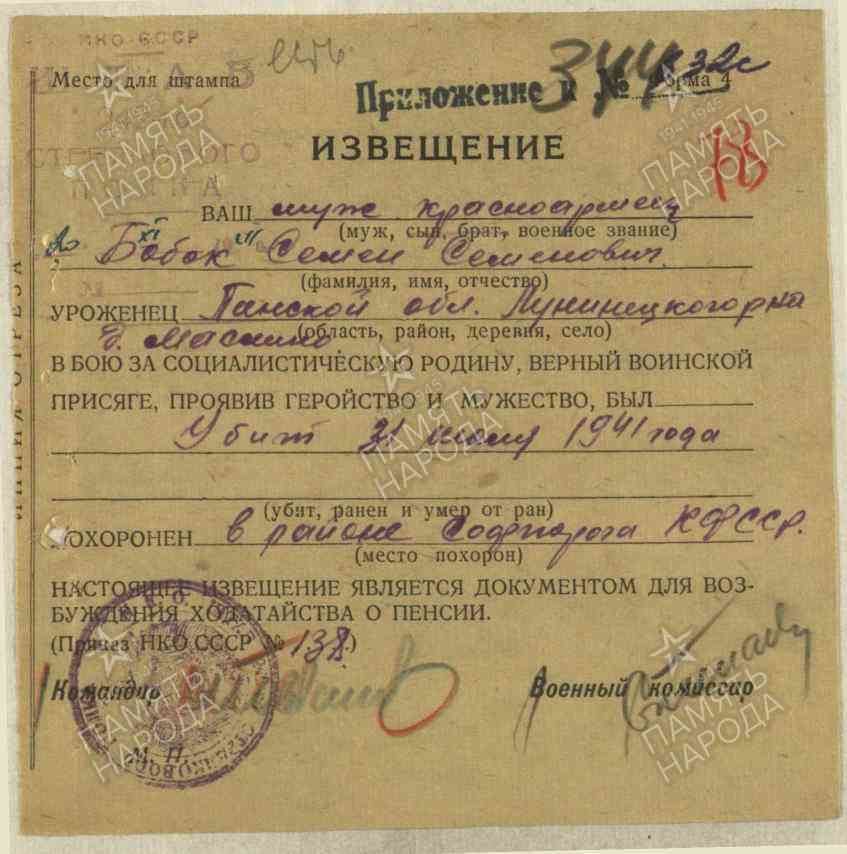 НКО СССР
ШТАБ
Место для штампа
есть.
Приложение к № 344
Форма 4
32с
СТРЕЛКОВОГО
ПОЛКА
ИЗВЕЩЕНИЕ
ВАШ муж красноармеец
(муж, сын, брат, военное звание)
Бобок Семен Семенович.
(фамилия, имя, отчество)
УРОЖЕНЕЦ Пинской обл. Лунинецкого р-на
(область, район, деревня, село)
д.
В БОЮ ЗА СОЦИАЛИСТИЧЕСКУЮ РОДИНУ, ВЕРНЫЙ ВОИНСКОЙ
ПРИСЯГЕ, ПРОЯВИВ ГЕРОЙСТВО И МУЖЕСТВО, БЫЛ
Убит 31 1941 года
(убит, ранен и умер от ран)
ПОХОРОНЕН в районе Софпорога КФССР.
(место похорон)
НАСТОЯЩЕЕ ИЗВЕЩЕНИЕ ЯВЛЯЕТСЯ ДОКУМЕНТОМ ДЛЯ ВОЗ-
БУЖДЕНИЯ ХОДАТАЙСТВА О ПЕНСИИ.
(Приказ НКО СССР № 138.)
Командир
Военный комиссар
М. П.
ЛИНИЯ ОТРЕЗА
1941-1945
ПАМЯТЬ
НАРОДА